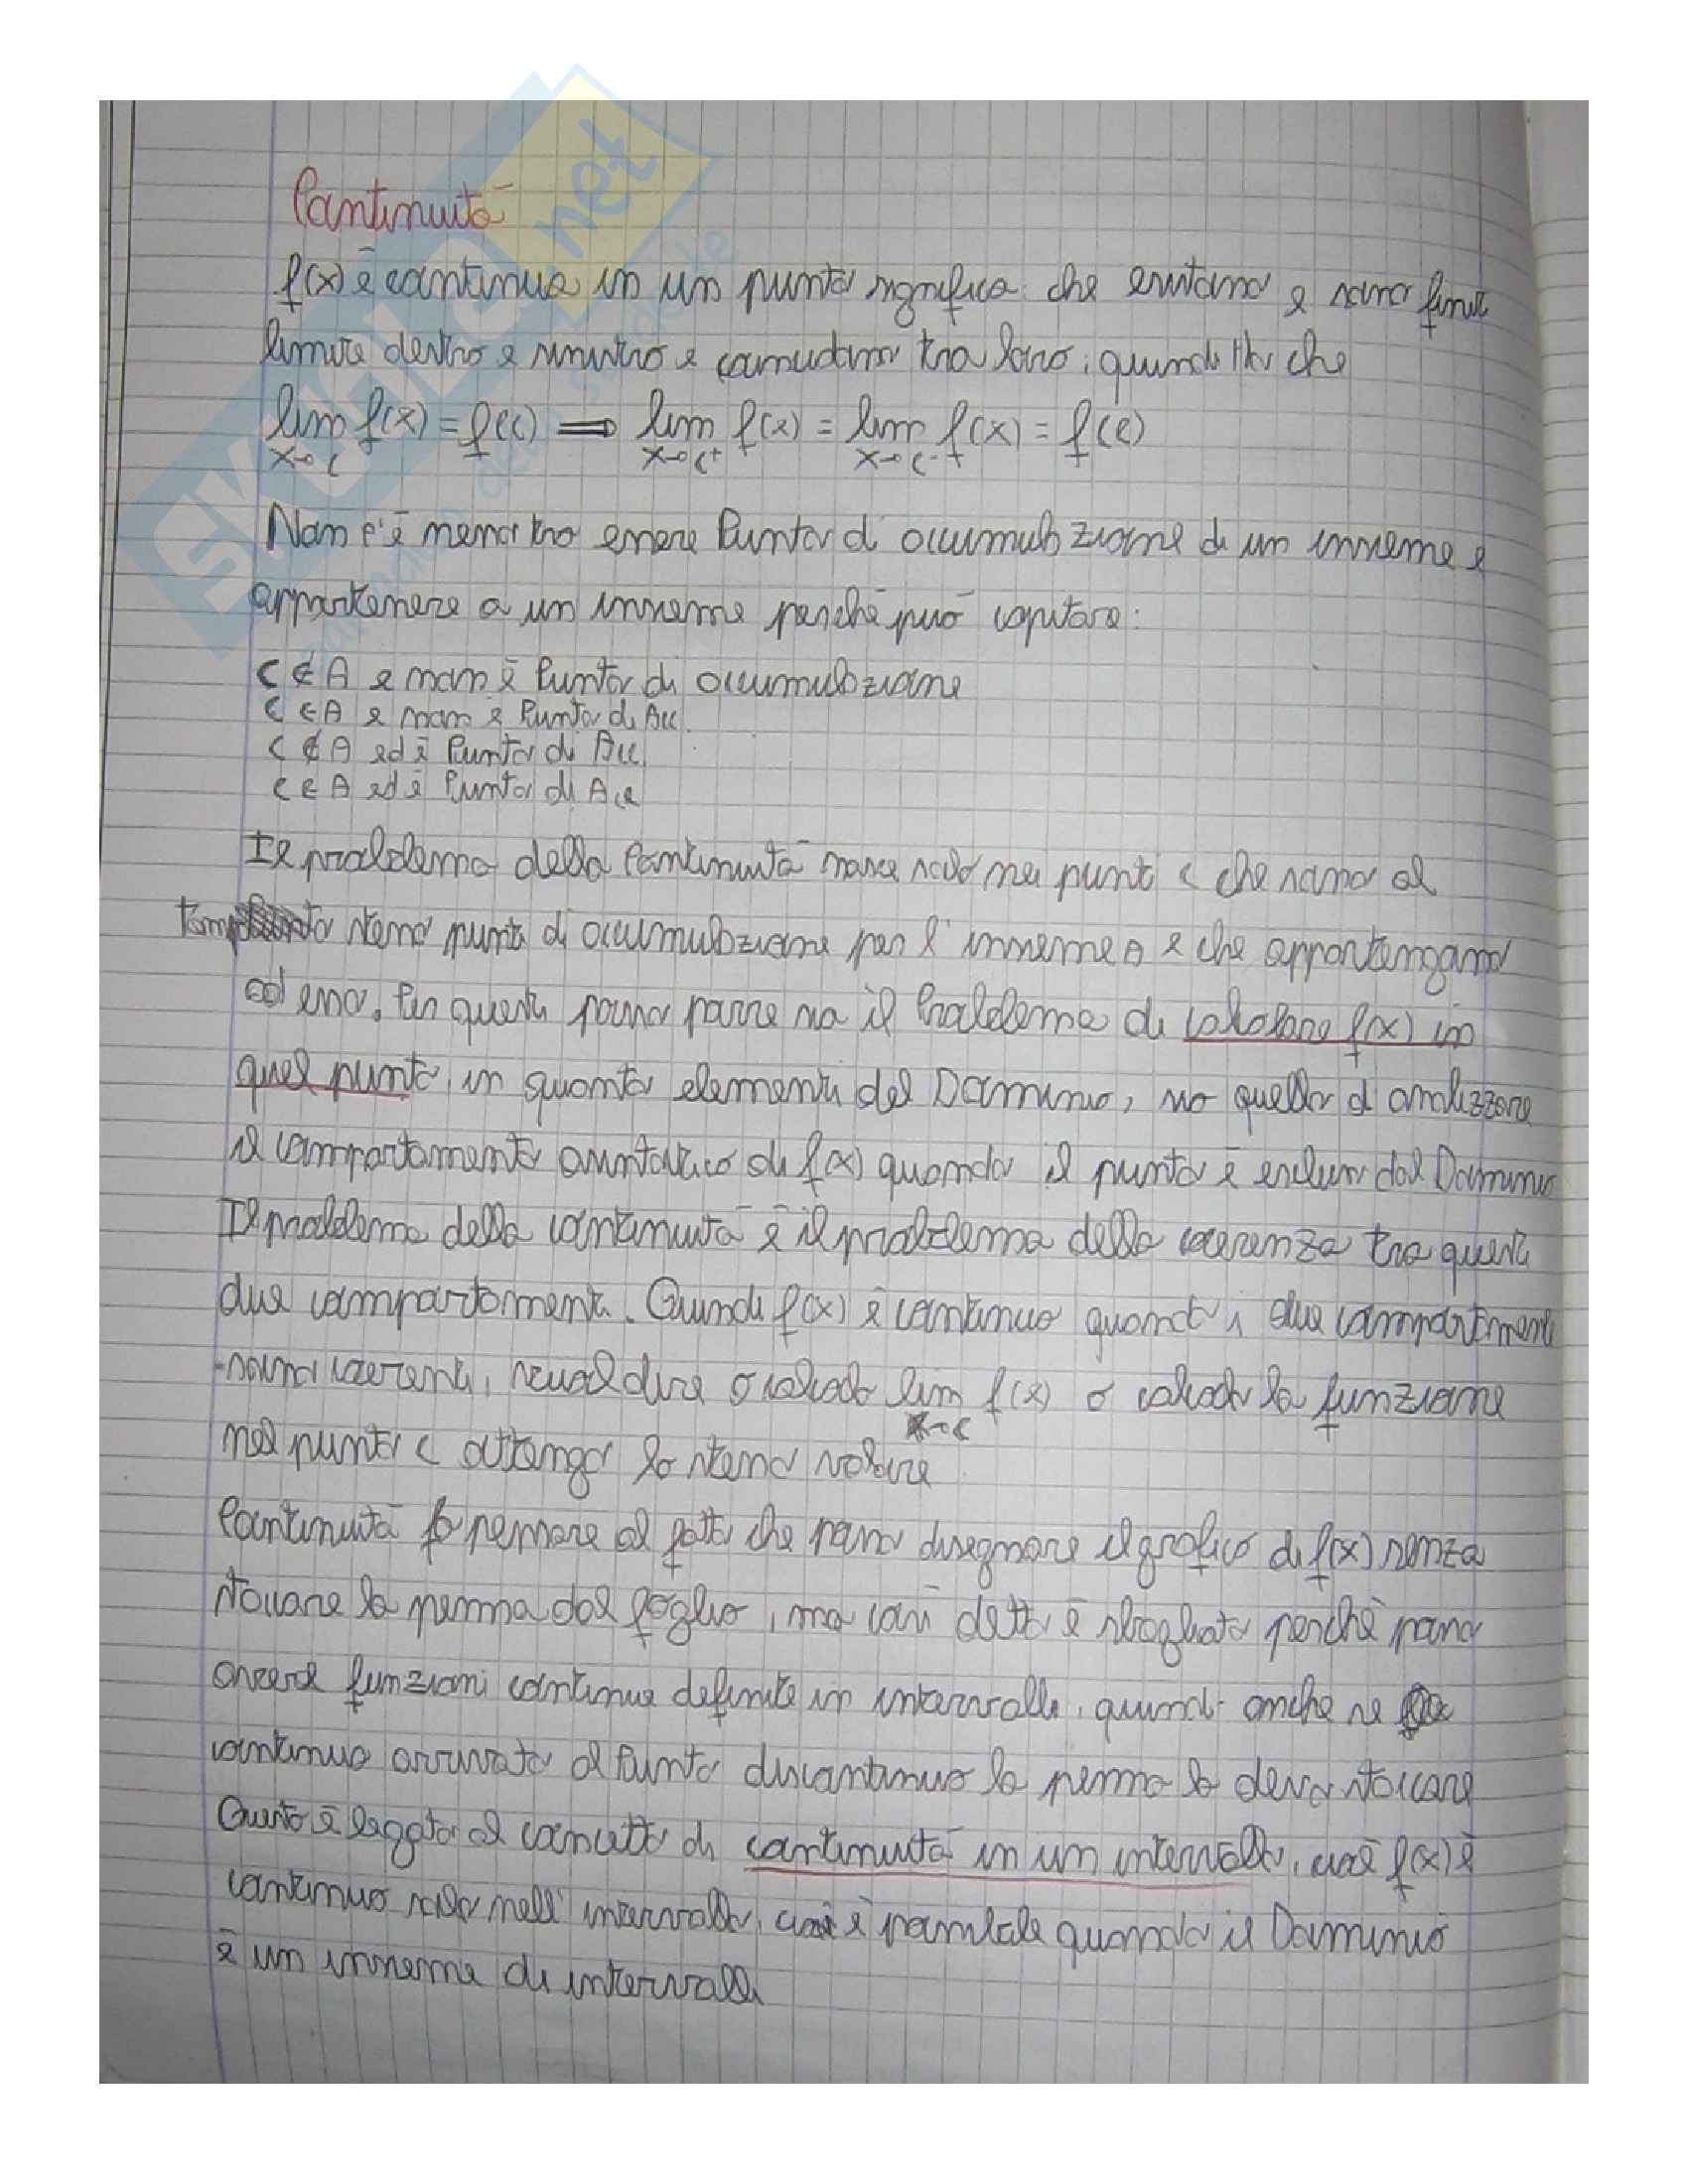 Continuità
f(x) è continua in un punto significa che esistano e sono finiti
limite destro e sinistro e coincidano tra loro, quindi Ho che
lim f(x) = f(c) ⟹ lim f(x) = lim f(x) = f(c)
x→c x→c⁺ x→c⁻
Non c'è nesso tra essere Punto di accumulazione di un insieme e
appartenere a un insieme perchè può capitare:
c ∉ A e non è Punto di accumulazione
c ∈ A e non è Punto di Acc.
c ∉ A ed è Punto di Acc.
c ∈ A ed è Punto di Acc
Il problema della Continuità nasce solo nei punti c che sono al
tempo stesso punti di accumulazione per l'insieme A e che appartengano
ad esso. Per questi posso porre sia il Problema di calcolare f(x) in
quel punto, in quanto elementi del Dominio, sia quello di analizzare
il comportamento asintotico di f(x) quando il punto è escluso dal Dominio
Il problema della continuità è il problema della coerenza tra questi
due comportamenti. Quindi f(x) è continua quando i due comportamenti
sono coerenti, vual dire o calcolo lim f(x) o calcolo la funzione
x→c
nel punto c ottengo lo stesso valore
Continuità fa pensare al fatto che posso disegnare il grafico di f(x) senza
staccare la penna dal foglio, ma così detto è sbagliato perchè posso
avere funzioni continue definite in intervalli, quindi anche se
continua arrivato al Punto discontinuo la penna la devo staccare
Questo è legato al concetto di continuità in un intervallo, cioè f(x) è
continua solo nell'intervallo, cioè è possibile quando il Dominio
è un insieme di intervalli
SKUOLA.net